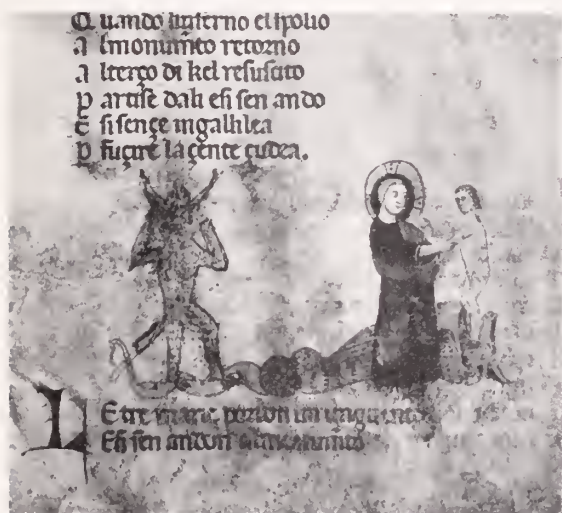 Quando linferno el spolio
al monumento retorno
al terço di kel resuscito
partise dali esi sen ando
E si sençe in galilea
p fuçire la çente çudea.
Le tre marie porton un unguento
Esi sen andon